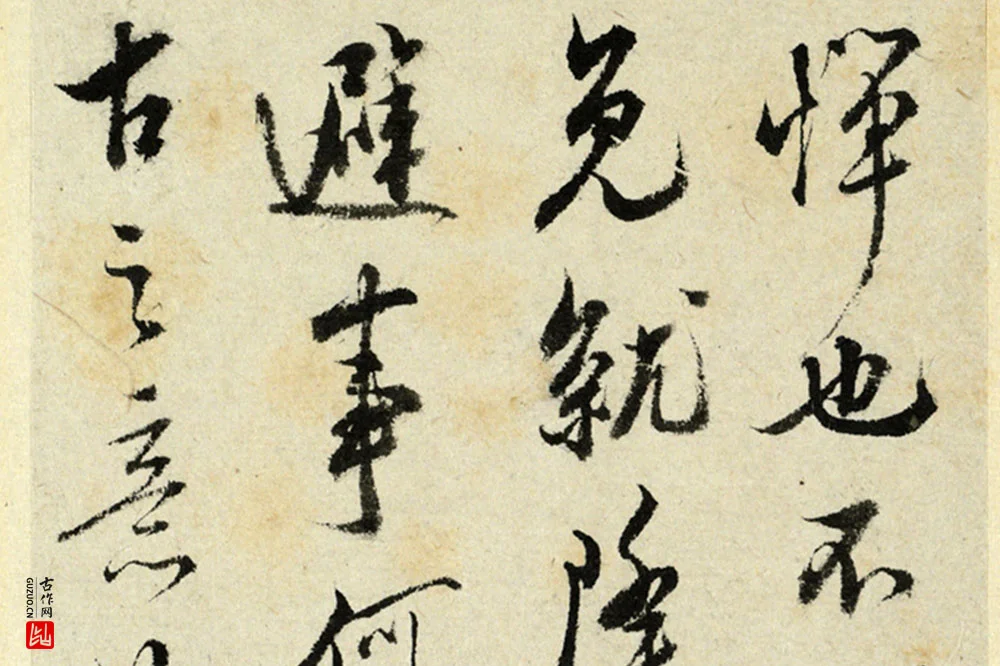 憚也不
免就
避事何
古之意
古作网
GUZUO.CN